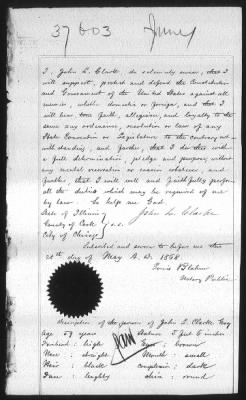 37603
I, John L. Clarke do solemnly swear, that I
will support, protect and defend the Constitution
and Government of the United States against all
enemies, whether domestic or foreign, and that I
will bear true faith, allegiance, and loyalty to the
same any ordinance, resolution or law of any
State Convention or Legislature to the contrary not-
withstanding, and further, that I do this with
a full determination, pledge and purpose, without
any mental reservation or evasion whatever, and
further that I will well and faithfully perform
all the duties which may be required of me
by law. So help me God.
State of Illinois
County of Cook s.s.
City of Chicago
John L. Clarke
Subscribed and sworn to before me this
day of May A.D. 1868
Notary Public
Description of the person of John L. Clarke Esq
Age 57 year Stature 5 feet 6 inches
Forehead: high Eyes: brown
Nose: straight Mouth: small
Hair: black complexion: dark
Face: lengthy chin: round